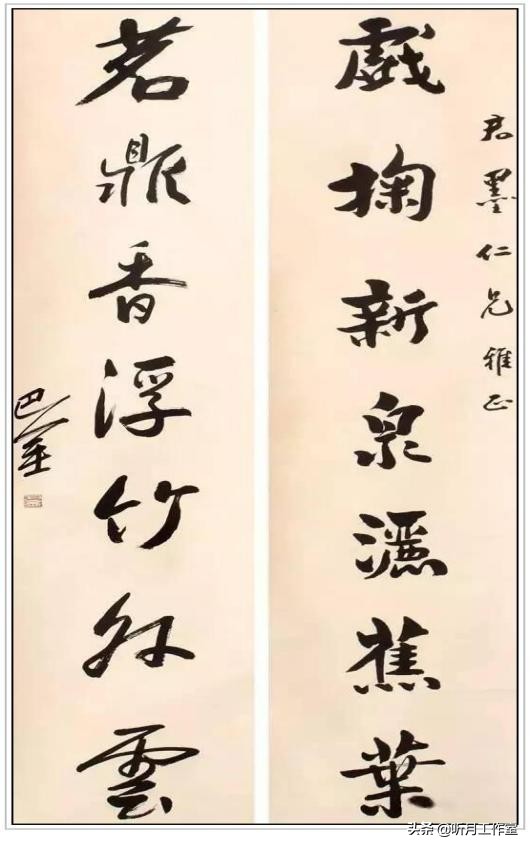 君墨仁兄雅正
戲掬新泉灑蕉葉
茗鼎香浮竹外雲
巴
头条 @听月工作室